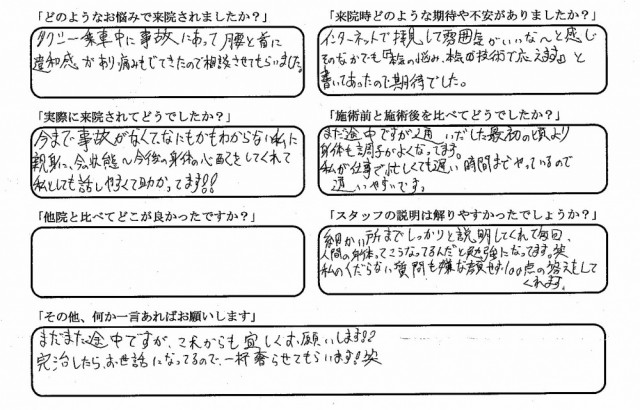 「どのようなお悩みで来院されましたか？」
タクシー乗車中に事故にあって腰と首に
違和感があり痛みもでてきたので相談させてもらいました。
「来院時どのような期待や不安がありましたか？」
インターネットで拝見して雰囲気がいいなーと感じ
そのなかでも「私の悩み、私が技術で応えます」と
書いてあったので期待でした。
「実際に来院されてどうでしたか？」
今まで事故がなくて、なにもかもわからない私に
親身に、今の状態〜今後の身体の心配をしてくれて
私としても話しやすくて助かってます!!
「施術前と施術後を比べてどうでしたか？」
まだ途中ですが通いだした最初の頃より
身体も調子がよくなってます。
私が仕事で忙しくても遅い時間までやっているので
通いやすいです。
「他院と比べてどこが良かったですか？」
「スタッフの説明は解りやすかったでしょうか？」
細かい所までしっかりと説明してくれて毎回、
人間の身体ってこうなってるんだと勉強になってます。笑
私のくだらない質問も嫌な顔せず、100点の答えをして
くれます。
「その他、何か一言あればお願いします」
まだまだ途中ですが、これからも宜しくお願いします!!
完治したら、お世話になってるので、一杯奢らせてもらいます!笑